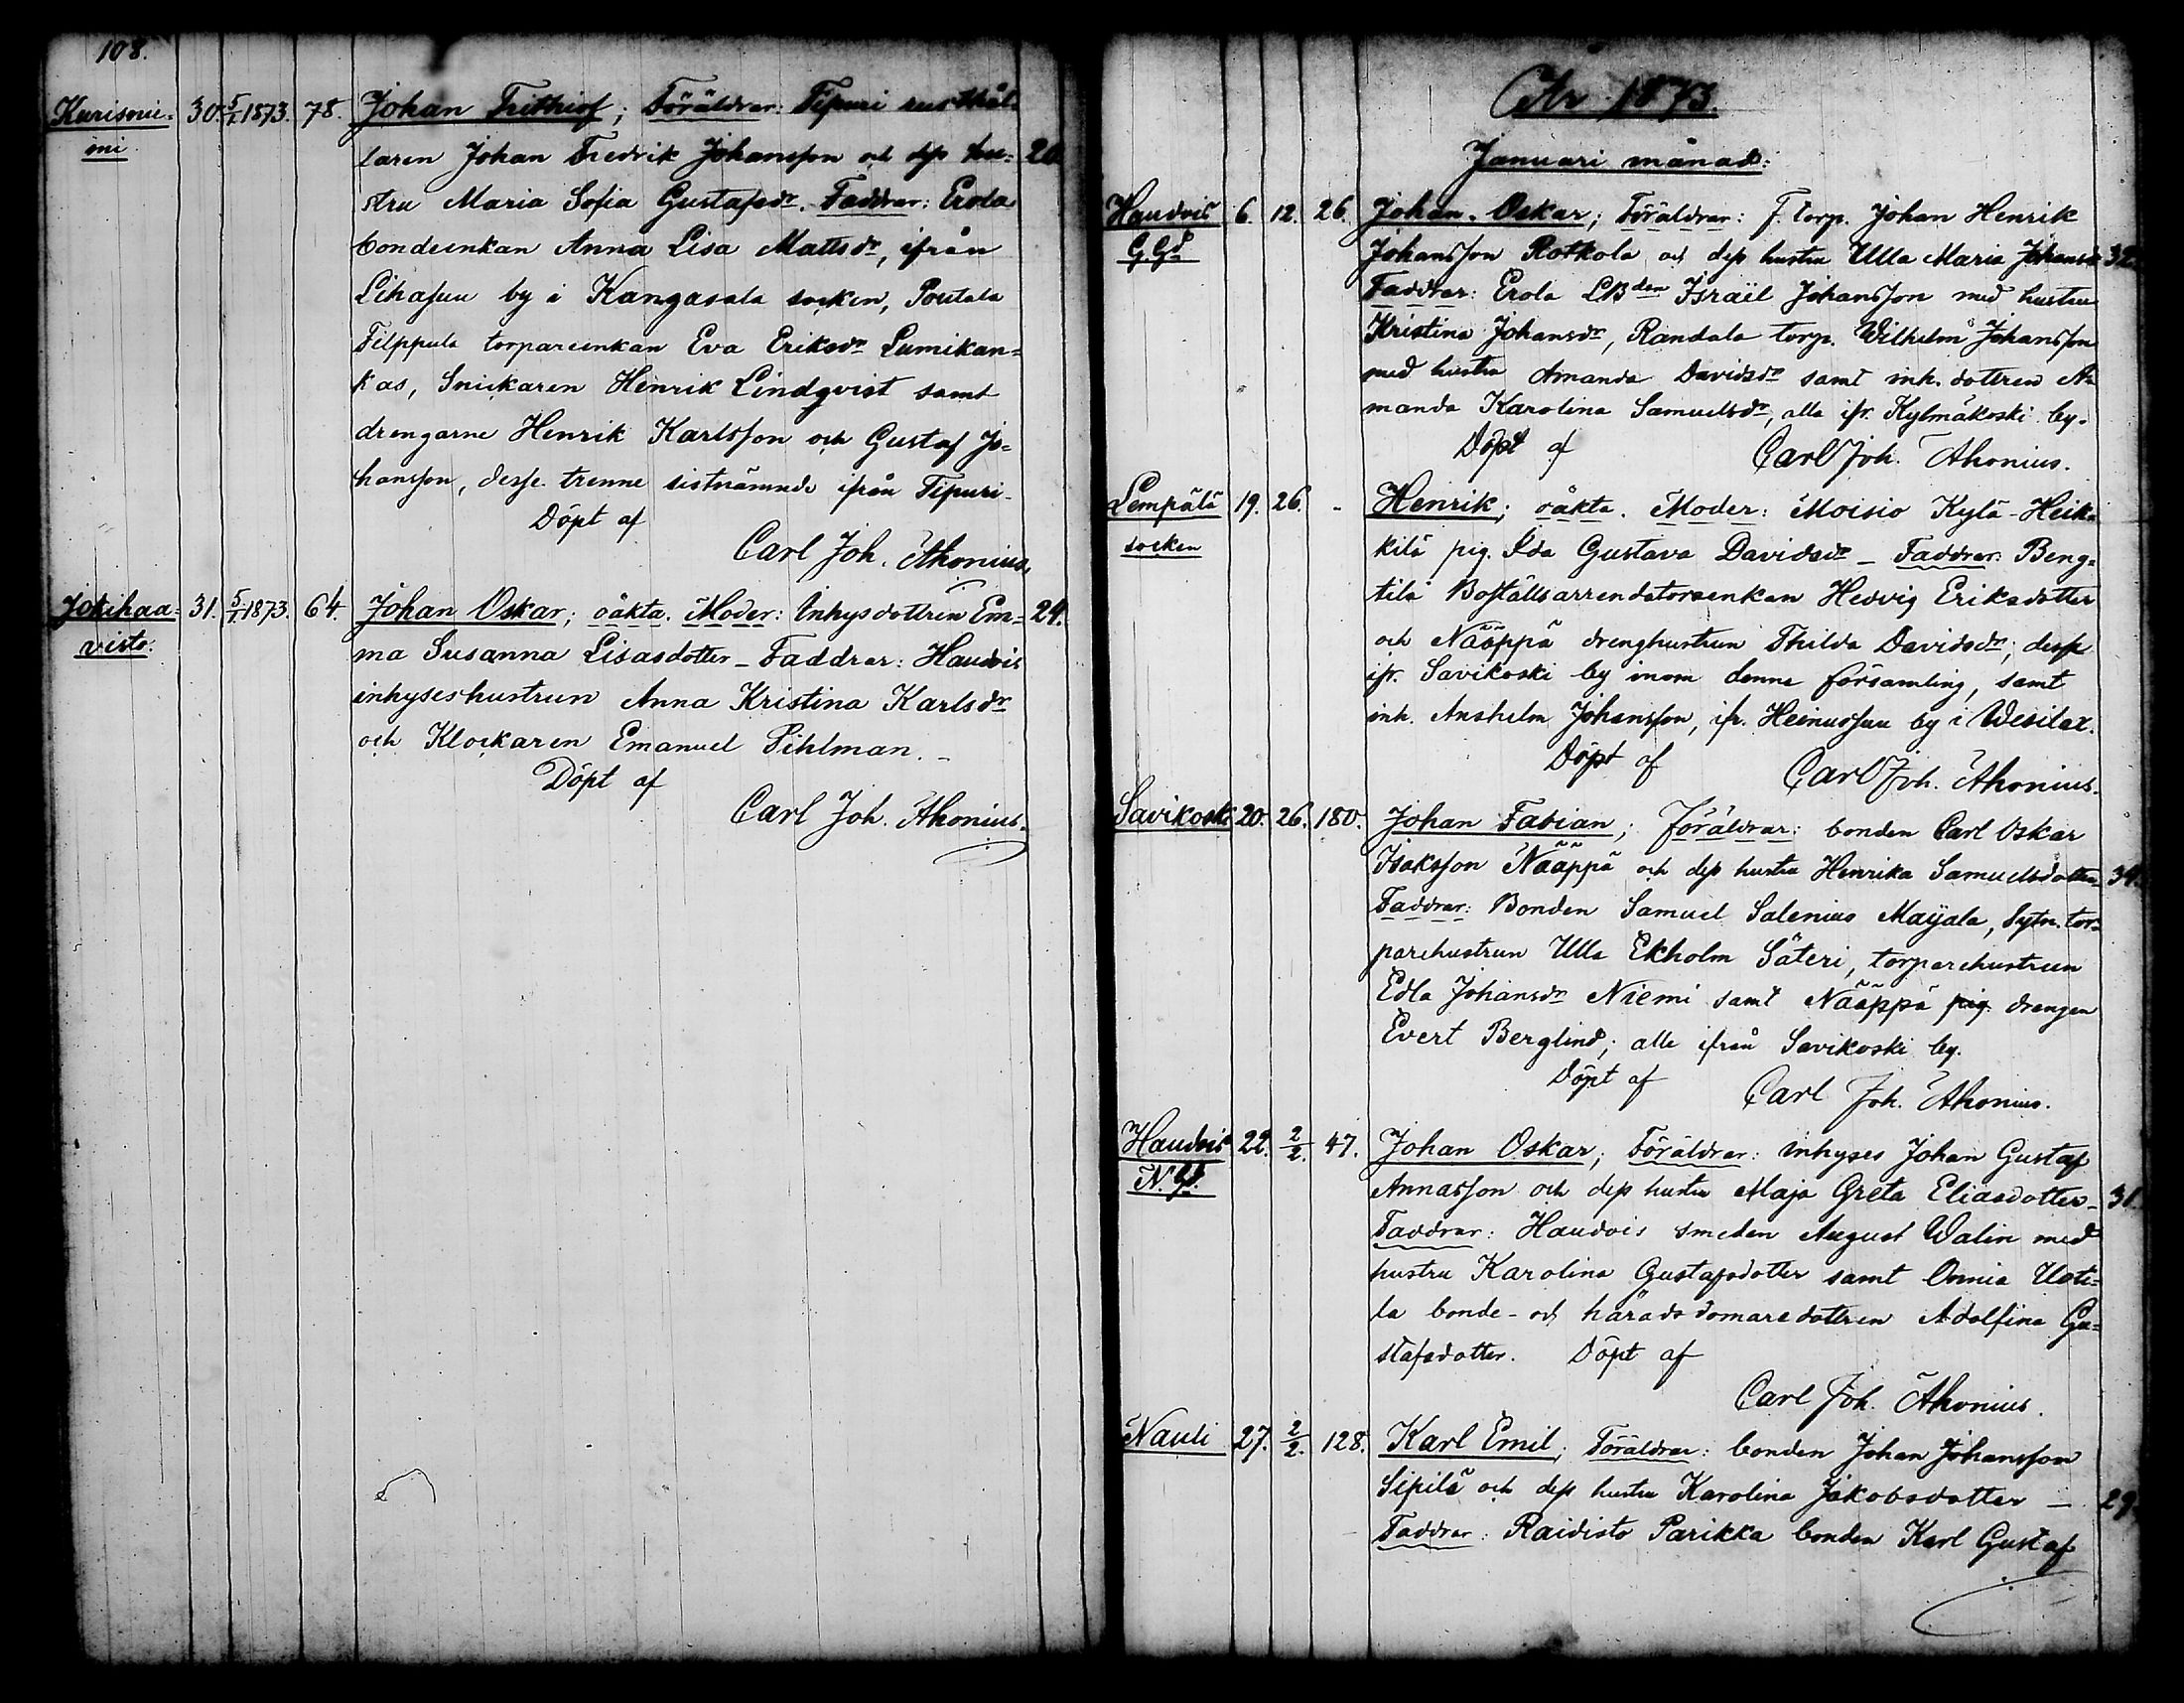 108.
Kurisnie= 30. 5/1 1873. 78. Johan Frithiof; Föräldrar: Tipuri rusthål=
mi laren Johan Fredrik Johansson och dess hu= 20
stru Maria Sofia Gustafsdr. Faddrar: Erola
bondeenkan Anna Lisa Mattsdr, ifrån
Lihasuu by i Kangasala socken, Poutala
Filppula torpareenkan Eva Eriksdr Lumikan=
kas, Snickaren Henrik Lindqvist samt
drengarne Henrik Karlsson och Gustaf Jo=
hansson, desse trenne sistnämnde ifrån Tipuri.
Döpt af
Carl Joh. Ahonius.
Jokihaa= 31. 5/1 1873. 64. Johan Oskar; oäkta. Moder: Inhysdottren Em= 24.
visto: ma Susanna Lisasdotter _ Faddrar: Haudois
inhyseshustrun Anna Kristina Karlsdr
och Klockaren Emanuel Pihlman. _
Döpt af
Carl Joh. Ahonius.
År 1873.
Januari månad:
Haudois 6. 12. 26. Johan Oskar; Föräldrar: f. torp. Johan Henrik
G.Gd Johansson Rotkola och dess hustru Ulla Maria Johansd 32.
Faddrar: Erola LBden Israël Johansson med hustru
Kristina Johansdr, Randala torp. Wilhelm Johansson
med hustru Amanda Davidsdr samt inh. dottren A=
manda Karolina Samuelsdr, alla ifr. Kylmäkoski by.
Döpt af Carl Joh. Ahonius.
Lempälä 19. 26. - Henrik; oäkta. Moder: Moisio Kylä-Heik=
socken kilä pig. Ida Gustava Davidsdr _ Faddrar: Beng=
tilä Boställsarrendatorsenkan Hedvig Eriksdotter
och Nääppä drenghustrun Thilda Davidsdr; desse
ifr. Savikoski by inom denna församling, samt
inh. Anshelm Johansson, ifr. Heinussuu by i Wesilax.
Döpt af Carl Joh. Ahonius.
Savikoski 20. 26. 180. Johan Fabian; Föräldrar: bonden Carl Oskar
Isaksson Nääppä och dess hustru Henrika Samuelsdotter 34.
Faddrar: Bonden Samuel Salenius Maijala, Sytn. tor=
parehustrun Ulla Ekholm Säteri, torparehustrun
Edla Johansdr Niemi samt Nääppä pig. drengen
Evert Berglind; alle ifrån Savikoski by.
Döpt af Carl Joh. Ahonius.
Haudois 22. 2/2. 47. Johan Oskar; Föräldrar: inhyses Johan Gustaf
N.Gd. Annasson och dess hustru Maja Greta Eliasdotter_ 31.
Faddrar: Haudois smeden August Walin med
hustru Karolina Gustafsdotter samt Onnia Uoti=
la bonde- och häradsdomaredottren Adolfina Gu=
stafsdotter. Döpt af
Carl Joh. Ahonius.
Nauli 27. 2/2. 128. Karl Emil; Föräldrar: bonden Johan Johansson
Sipilä och dess hustru Karolina Jakobsdotter _ 29.
Faddrar: Raidisto Parikka bonden Karl Gustaf